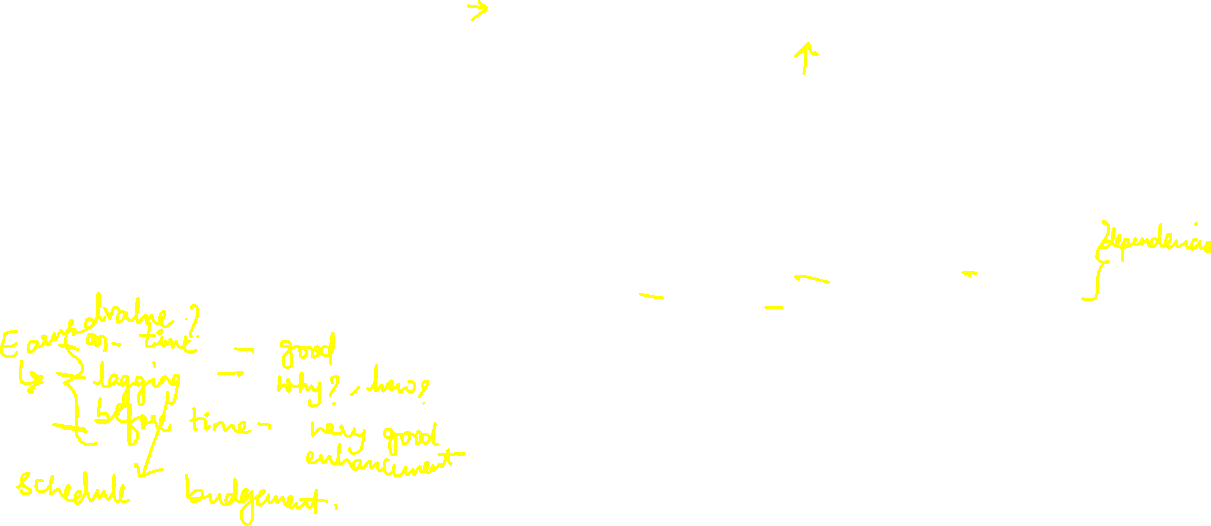 dependencies
Earned value?
on time - good
lagging - why?, how?
before time - very good
enhancement
Schedule budgement.